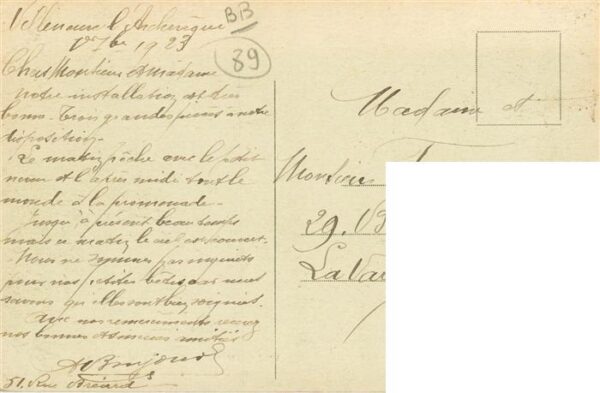 Villeneuve l'Archevêque
BB
1923
89
Chers Monsieur et Madame
notre installation est très
bonne. Trois grandes pièces à notre
disposition.
Le matin pêche avec le petit
neveu et l'après midi tout le
monde à la promenade.
Jusqu'à présent beau temps
mais ce matin le ciel est couvert.
Nous ne sommes pas inquiets
pour nos petites bêtes car nous
savons qu'elles sont bien soignées.
Avec nos remerciements recevez
nos bonnes et sincères amitiés
51. Rue
Madame et
Monsieur
29. B
LaVar